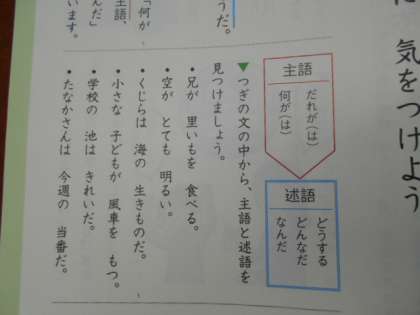 に 気をつけよう
主語
だれが(は)
何が(は)
述語
どうする
どんなだ
なんだ
▼つぎの文の中から、主語と述語を
見つけましょう。
・兄が 里いもを 食べる。
・空が とても 明るい。
・くじらは 海の 生きものだ。
・小さな 子どもが 風車を もつ。
・学校の 池は きれいだ。
・たなかさんは 今週の 当番だ。
うだ。
「何が
主語、
んだ」
います。